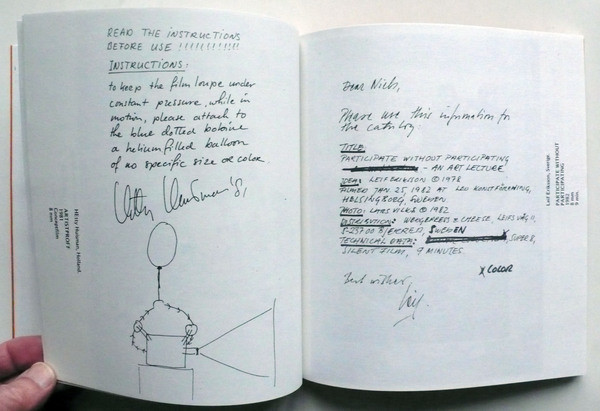 READ THE INSTRUCTIONS
BEFORE USE !!!!!!!!!!!!
INSTRUCTIONS:
to keep the film loupe under
constant pressure, while in
motion, please attach to
the blue dotted bobine
a helium filled balloon
of no specific size or color.
Hetty Huisman '81,
Hetty Huisman, Holland.
ARTISTPROFF
1981
conception
8 mm
Dear Niels,
Please use this information for
the catalog.
TITLE:
PARTICIPATE WITHOUT PARTICIPATING
- AN ART LECTURE
IDEA: LEIF ERIKSSON © 1978
FILMED JAN 25, 1982 AT LEO KONSTFÖRENING,
HELSINGBORG, SWEDEN
PHOTO: LARS VILKS © 1982
DISTRIBUTION: WEDGEPRESS & CHEESE, LEIFS VÄG 11,
S-23700 BJERRED, SWEDEN
TECHNICAL DATA: SUPER 8,
SILENT FILM, 9 MINUTES.
X COLOR
Best wishes,
Leif
Leif Eriksson, Sverige
PARTICIPATE WITHOUT
PARTICIPATING
8 mm